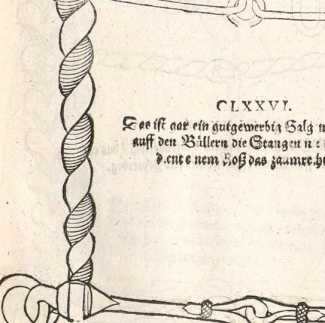 CLXXVI.
Das ist gar ein gutgewerbig
auff den Büllern die Stangen
nem Roß das zaumre